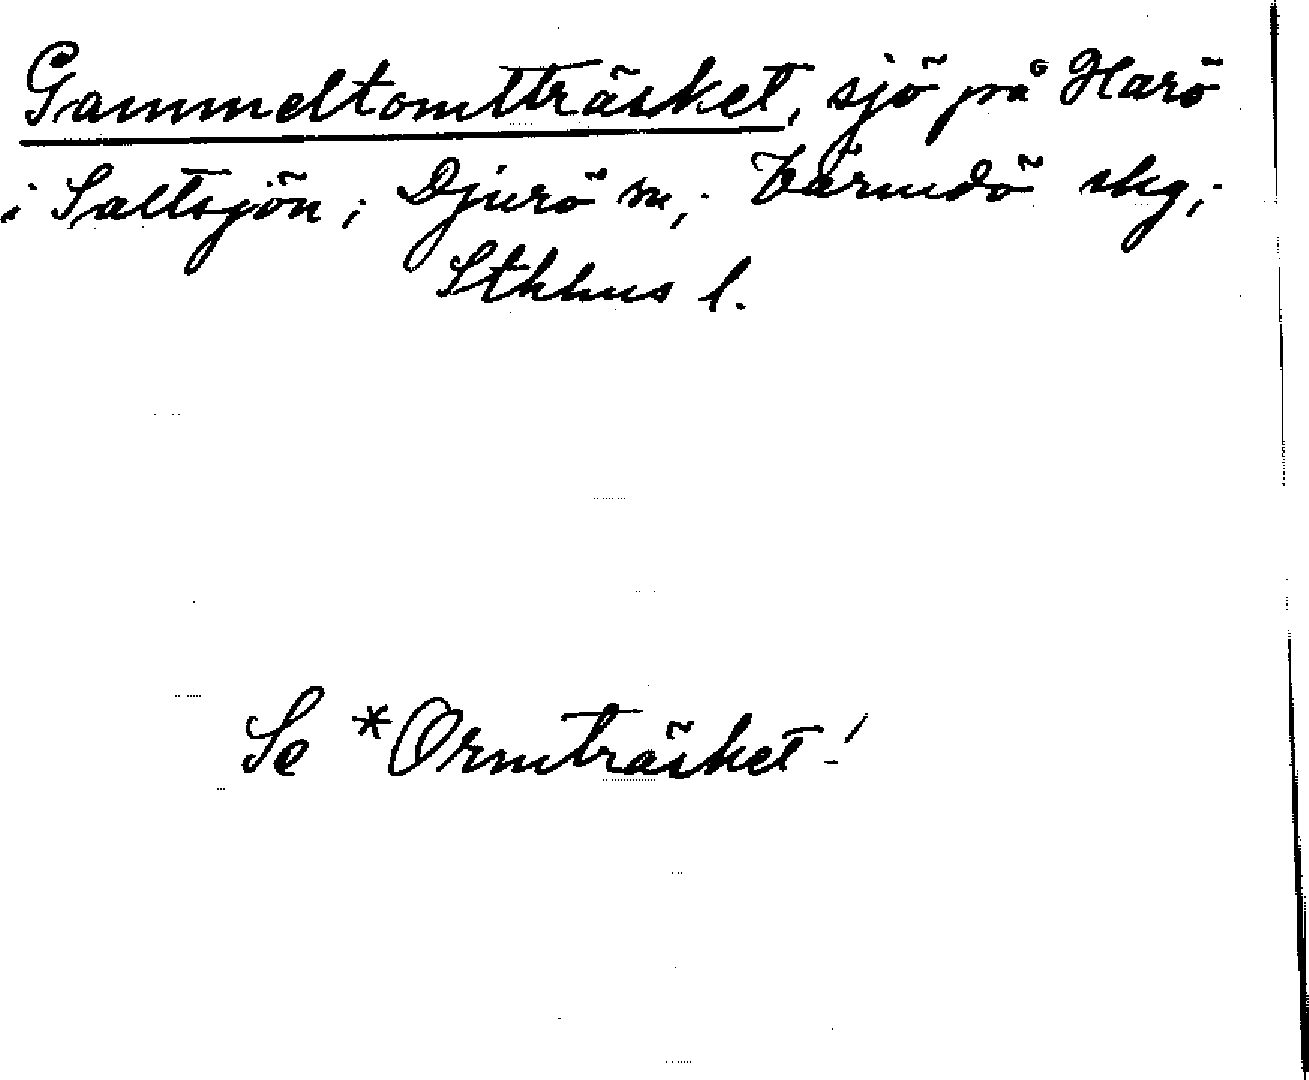 Gammeltomtträsket, sjö på Harö
i Saltsjön; Djurö sn,; Värmdö skg,;
Sthlms l.
Se *Ormträsket!